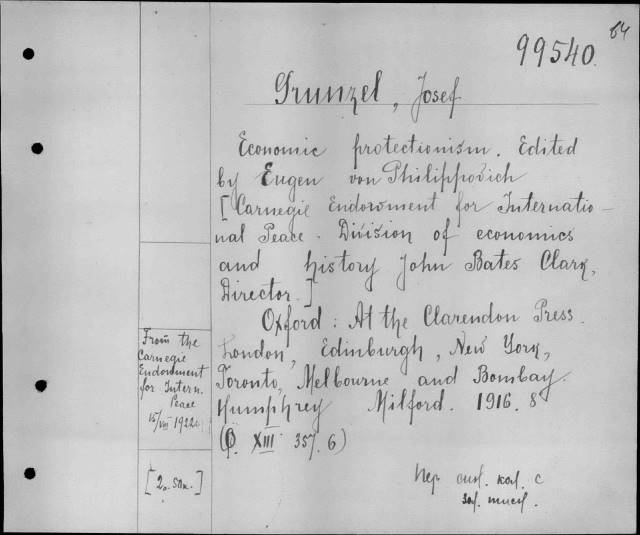 64
99540.
Grunzel, Josef
Economic protectionism. Edited
by Eugen von Philippovich
[Carnegie Endowment for Internatio-
nal Peace. Division of economics
and history John Bates Clark,
Director.]
Oxford: At the Clarendon Press.
London, Edinburgh, New York,
Toronto, Melbourne and Bombay.
Humphrey Milford. 1916. 8
XIII. 357. 6)
From the
Carnegie
Endowment
for Intern.
Peace
15/VIII 1922